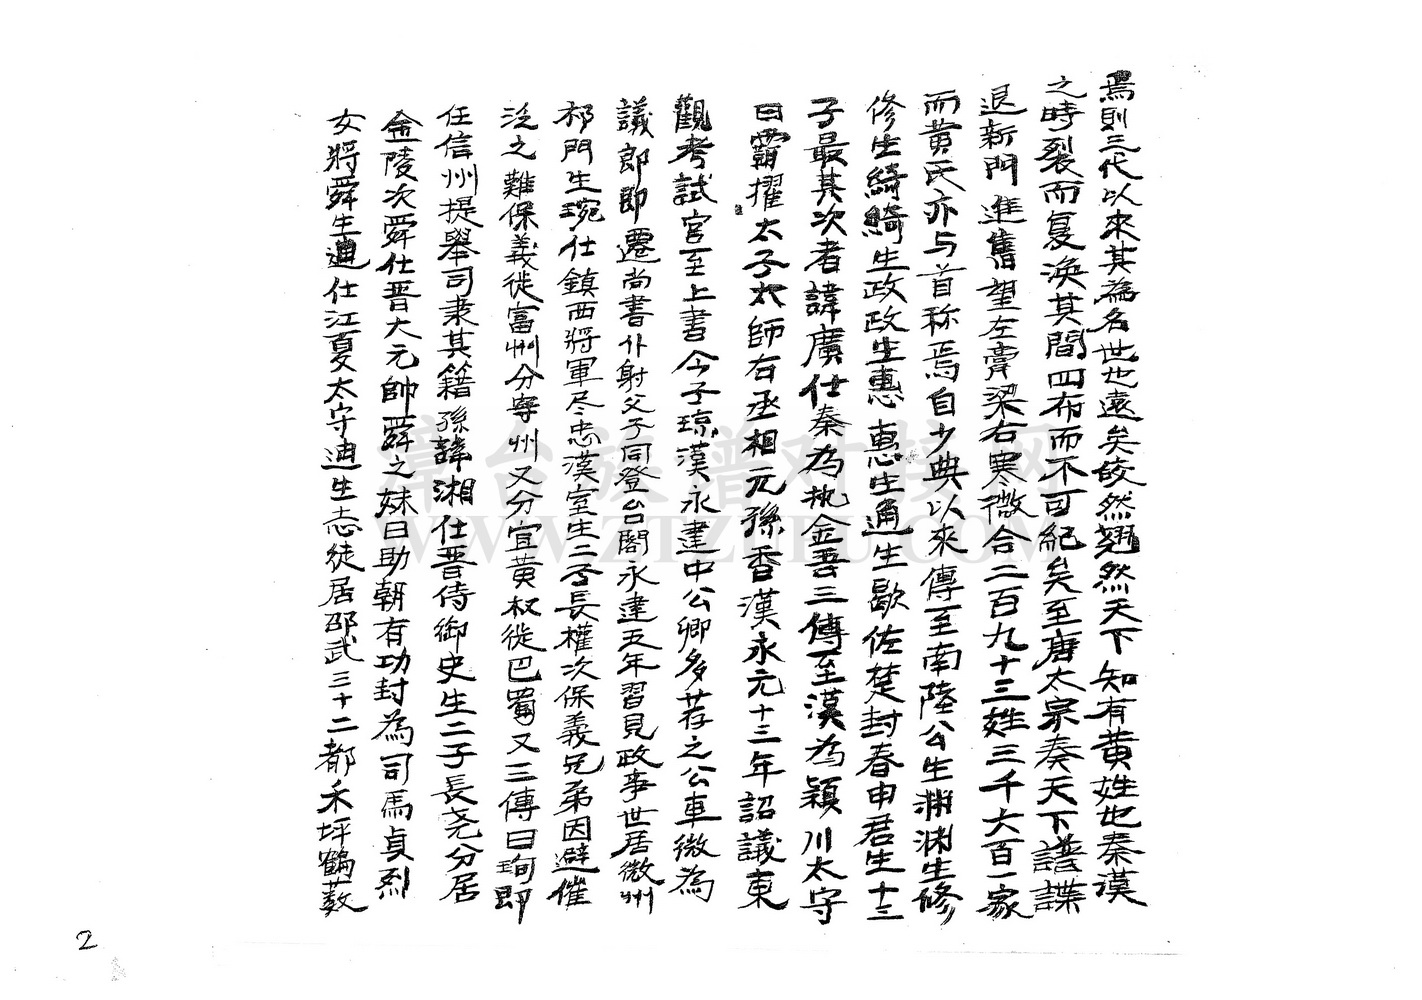 焉則三代以來其為名世也遠矣皎然翹然天下知有黃姓也秦漢
之時裂而复渙其間四布而不可紀矣至唐太宗奏天下譜諜
退新門進舊望左膏梁右寒微合二百九十三姓三千大百一家
而黃氏亦与首称焉自少典以來傳至南陸公生渊渊生修
修生綺綺生政政生惠惠生通生歇佐楚封春申君生十三
子最其次者諱廣仕秦為执金吾三傳至漢為穎川太守
曰霸擢太子太師右丞相元孫香漢永元十三年詔議東
觀考試官至上書令子琼漢永建中公卿多荐之公車微為
議郎即遷尚書仆射父子同登台閣永建五年習見政事世居微州
祁門生琬仕鎮西將軍尽忠漢室生二子長權次保義兄弟因避催
泛之難保義徙富州分寧州又分宜黄权徙巴蜀又三傳曰珣即
任信州提舉司隶其籍孫諱湘仕晋侍御史生二子長尧分居
金陵次舜仕晋大元帥舜之妹曰助朝有功封為司馬貞烈
女將舜生迪仕江夏太守迪生志徒居邵武三十二都禾坪鶴薮
2
漳台族谱对接网
WWW.ZTZUPU.COM